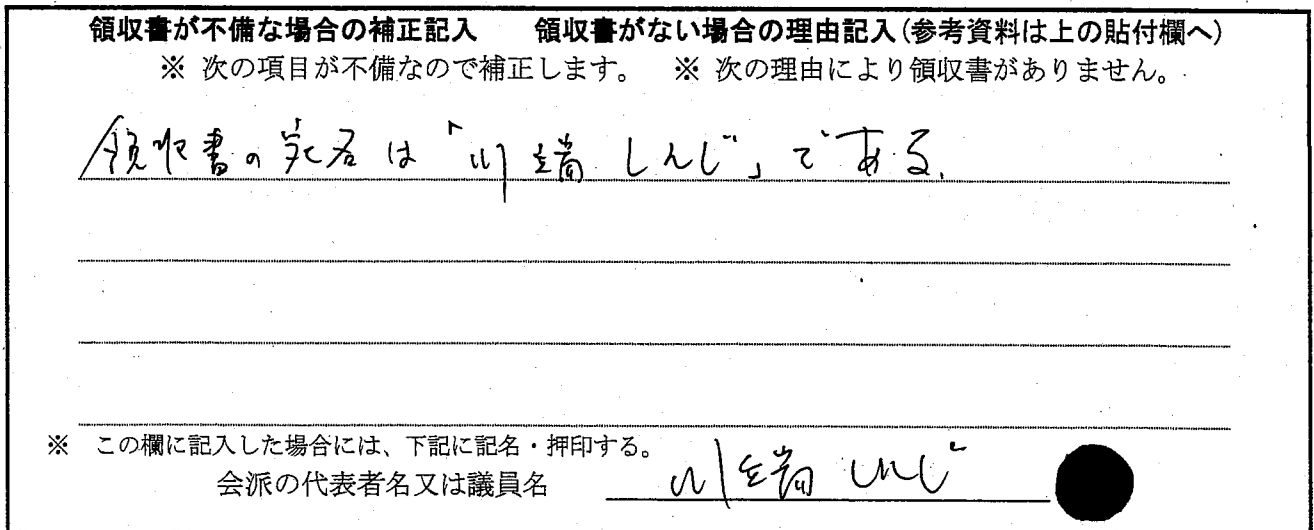 領収書が不備な場合の補正記入　領収書がない場合の理由記入(参考資料は上の貼付欄へ)
※ 次の項目が不備なので補正します。　※ 次の理由により領収書がありません。
領収書の宛名は「川端しんじ」である。
※　この欄に記入した場合には、下記に記名・押印する。
会派の代表者名又は議員名　川端しんじ